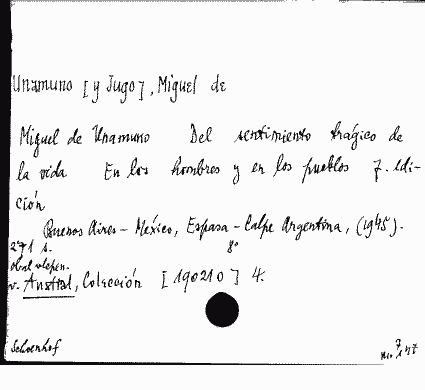 Unamuno [y Jugo], Miguel de
Miguel de Unamuno Del sentimiento trágico de
la vida En los hombres y en los pueblos 7. edi-
ción
Buenos Aires - México, Espasa - Calpe Argentina, (1945).
271 s. 8°
v. Austral, Colección [190210] 4.
Schoenhof